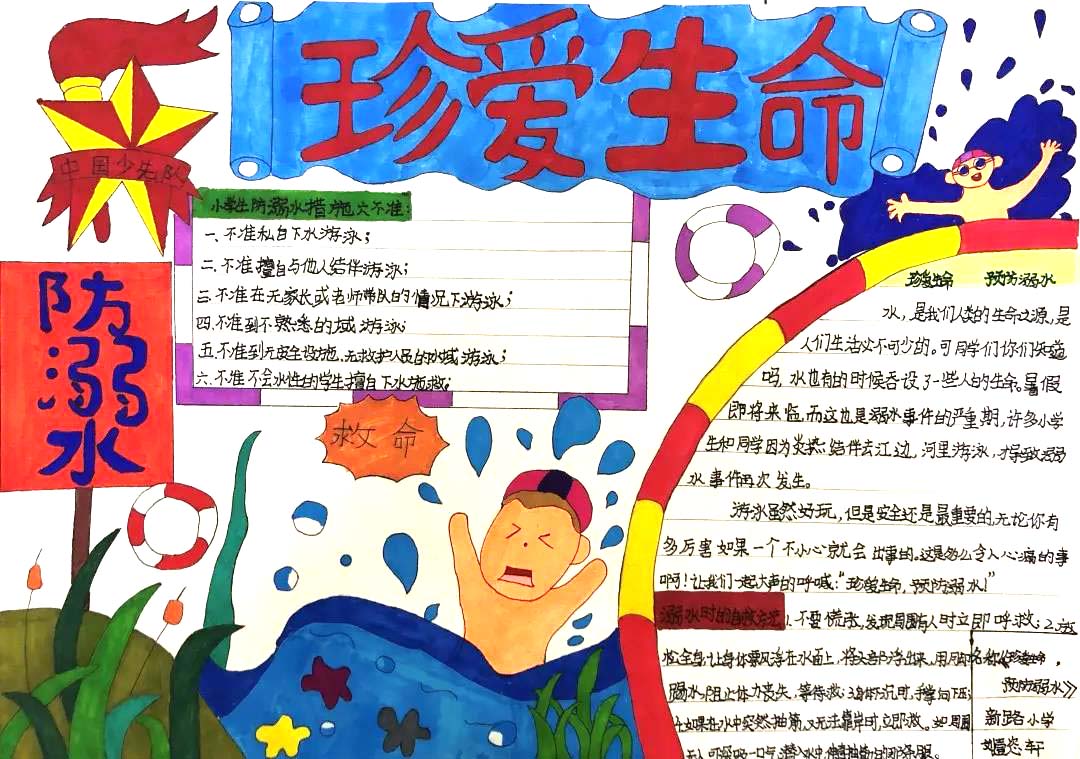 珍爱生命
中国少先队
小学生防溺水措施六不准:
一、不准私自下水游泳;
二、不准擅自与他人结伴游泳;
三、不准在无家长或老师带队的情况下游泳;
四、不准到不熟悉的域游泳
五、不准到无安全设施、无救护人员的水域游泳;
六、不准不会水性的学生擅自下水施救;
防溺水
救命
珍爱生命 预防溺水
水,是我们人类的生命之源,是
人们生活必不可少的。可同学们你们知道
吗,水也有的时候吞没了一些人的生命。暑假
即将来临,而这也是溺水事件的严重期,许多小学
生和同学因为炎热结伴去江边,河里游泳,才导致溺
水事件再次发生。
游泳虽然好玩,但是安全还是最重要的,无论你有
多厉害如果一个不小心就会出事的。这是多么令人心痛的事
啊!让我们一起大声的呼喊:“珍爱生命,预防溺水!”
溺水时的自救方法 1、不要慌张,发现周围有人时立即呼救;2、放
松全身,让身体飘浮在水面上,将头部浮出水面,用
防止体力丧失,等待救;3、身体下沉时,手掌向下压;
如果在水中突然抽筋,又无法靠岸时,立即求救。如周围
无人,可深吸一口气潜入水中
《珍爱生命,
预防溺水》
新路小学